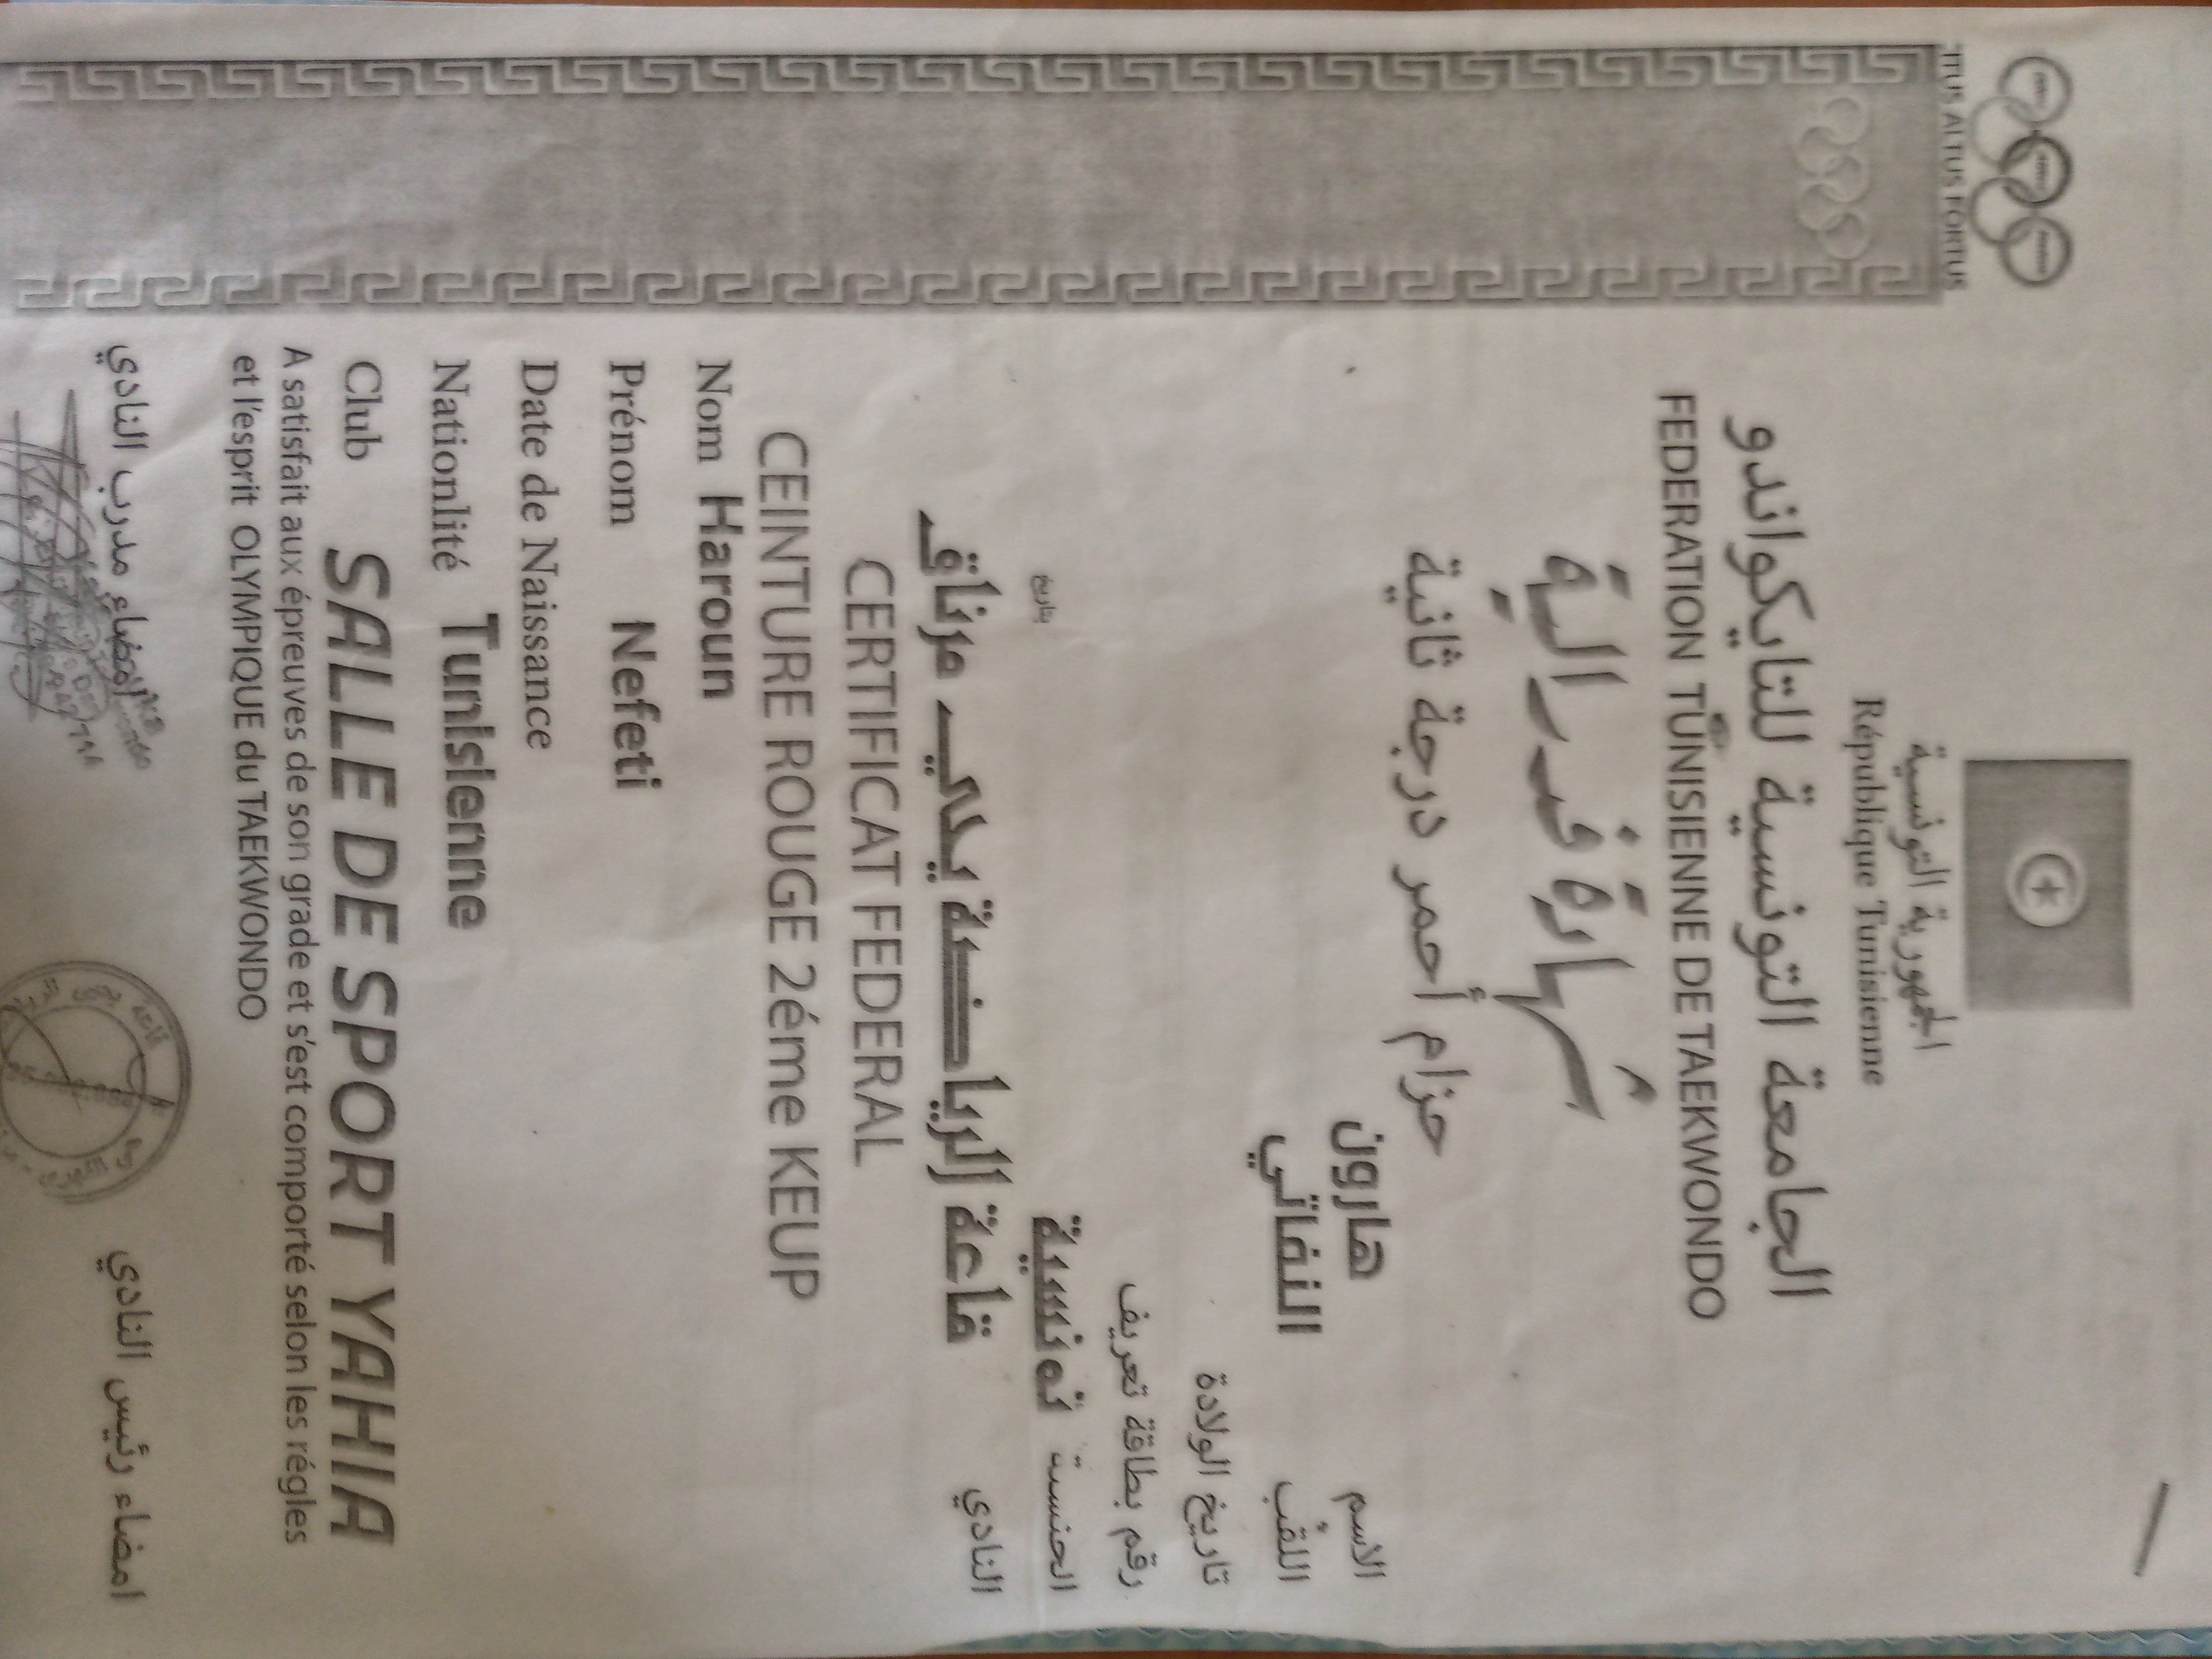 ITIUS ALTUS FORTIUS
الجمهورية التونسية
République Tunisienne
الجامعة التونسية للتايكواندو
FEDERATION TUNISIENNE DE TAEKWONDO
شهادة فدرالية
حزام أحمر درجة ثانية
الاسم هارون
اللقب النفاتي
تاريخ الولادة
رقم بطاقة تعريف
الجنسية تونسية
بتاريخ
النادي قاعة الرياضة يحي مرناق
CERTIFICAT FEDERAL
CEINTURE ROUGE 2éme KEUP
Nom Haroun
Prénom Nefeti
Date de Naissance
Nationlité Tunisienne
Club SALLE DE SPORT YAHIA
A satisfait aux épreuves de son grade et s'est comporté selon les régles
et l'esprit OLYMPIQUE du TAEKWONDO
امضاء رئيس النادي
امضاء مدرب النادي